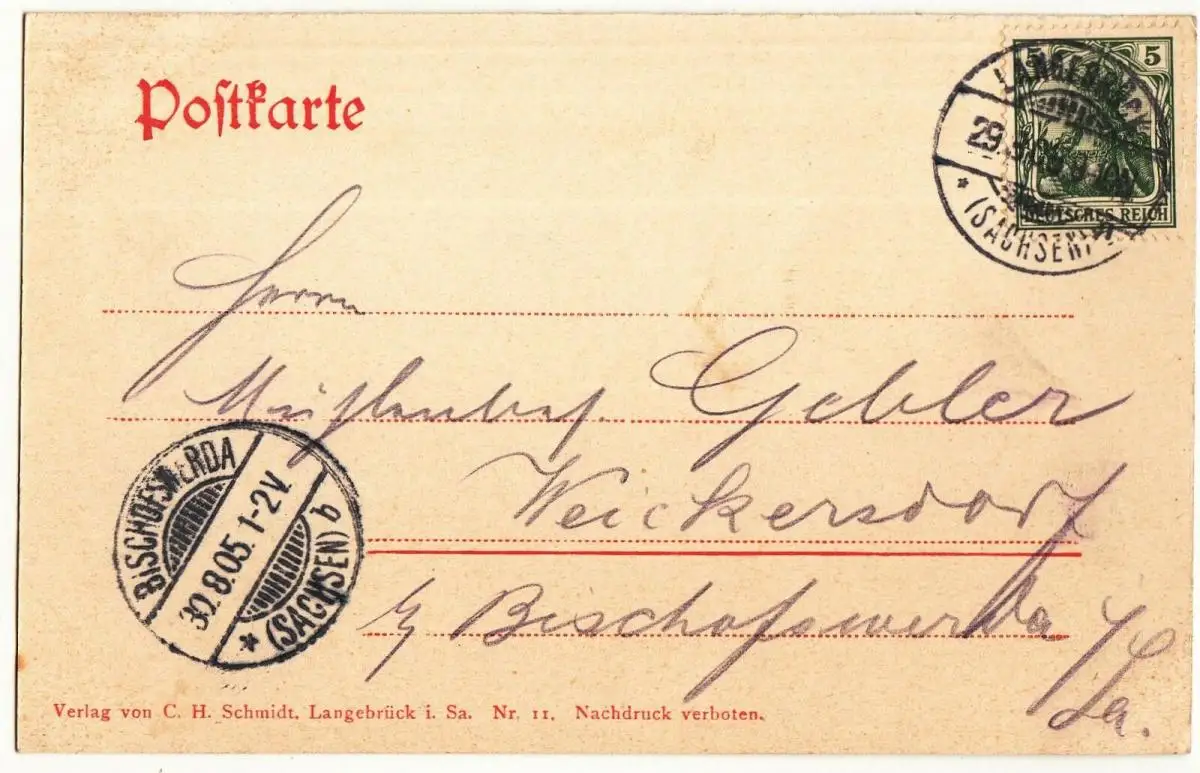 Postkarte
5 5
DEUTSCHES REICH
LANGEBRÜCK
29.
* (SACHSEN)
Herrn
Mühlenbes. Gebler
Weickersdorf
b/ Bischofswerda
i/Sa.
BISCHOFSWERDA
30.8.05. 1-2V.
* (SACHSEN) b
Verlag von C. H. Schmidt, Langebrück i. Sa. Nr. 11. Nachdruck verboten.